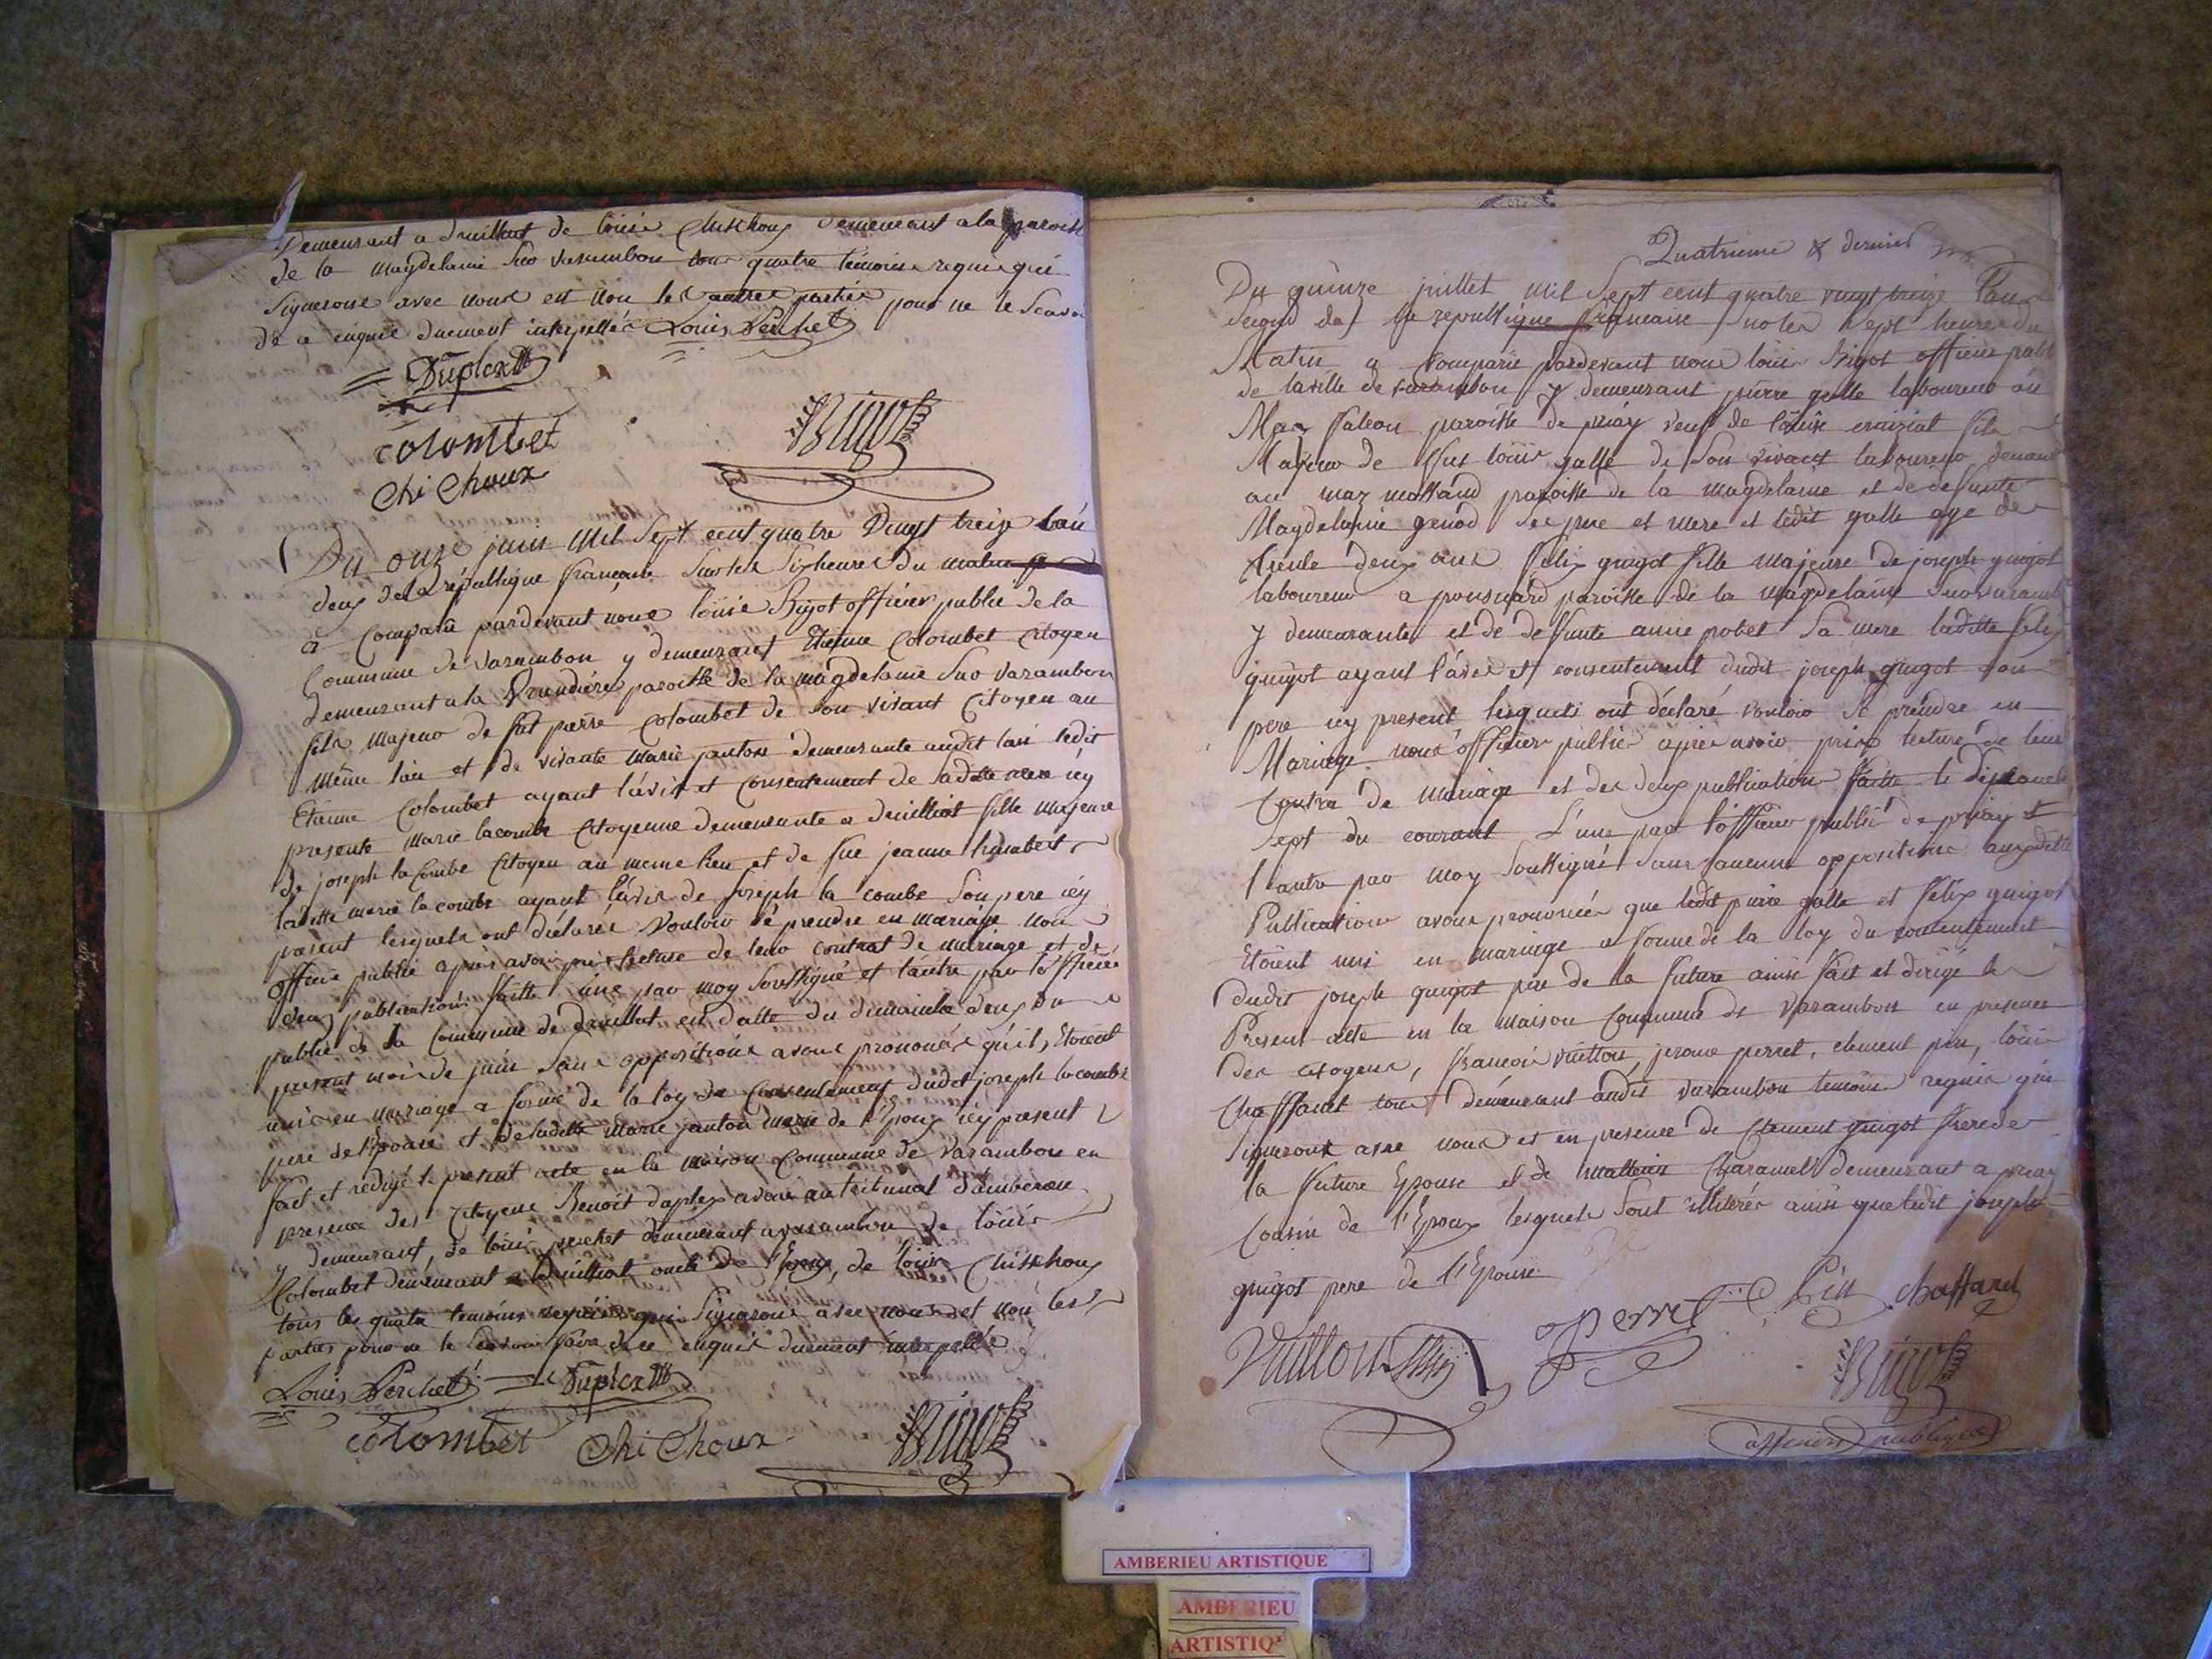 Demeurant a druillat de loüis Chischoux demeurant a la paroisse
de la magdelaine sur varambon tous quatre témoins requis qui
signeronts avec nous et non les autres parties pour ne le scavoir
de ce enquis duement interpellés Louis Perchet
Duplex
colombet
chi choux
Bigot
Du onze juin mil sept cent quatre vingt treize l'an
deux de la république françaisse sur les six heures du matin
a comparu pardevant nous loüis Bigot officier public de la
Commune de varambon y demeurant Etienne Colombet citoyen
demeurant a la paroisse de la magdelaine sur varambon
fils majeur de fut pierre Colombet de son vivant Citoyen au
même lieu et de vivante marie janton demeurante audit lieu ledit
Etienne Colombet ayant l'avis et consentement de sadite mere icy
presente marie lacombe Citoyenne demeurante a druilliat fille majeure
de joseph la Combe Citoyen au meme lieu et de fue jeanne humbert
laditte marie la combe ayant l'avis de joseph la combe son pere icy
present lesquels ont déclarés vouloir se prendre en mariage nous
officié public apres avoir pris lecture de leur contrat de mariage et de
deux publications faitte une par moy soussigné et l'autre par l'officier
public de la Commune de druillat en datte du dimanche deux du
present mois de juin sans oppositions avons prononcés qu'ils étoient
unis en mariage a forme de la loy du Consentement dudit joseph lacombe
pere de l'épouse et de laditte marie janton mere de l'Epoux icy present
fait et redigé le present acte en la maison Commune de varambon en
presence des Citoyens Benoit duplex avoué au tribunal d'ambronay
y demeurant, de loüis perchet demeurant a varambon de loüis
Colombet demeurant a druilliat oncle de l'Epoux, de loüis Chischoux
tous les quatre temoins requis qui signerons avec nous et non les
parties pour ne le scavoir faire de ce enquis duement interpellés
Louis Perchet Duplex
colombet chi choux Bigot
Quatrieme & dernier
Du quinze juillet mil sept cent quatre vingt treize l'an
second de la republique françaisse sur les sept heures du
Matin a comparu pardevant nous loüis Bigot officier public
de la ville de varambon y demeurant pierre galle laboureur au
Mas paroisse de priay veuf de fils
Majeur de fut loüis galle de son vivant laboureur demeurant
au mas paroisse de la magdelaine et de defunte
Magdelaine genod ses pere et mere et ledit galle agé de
trente deux ans felix guigot fille majeure de joseph guigot
laboureur a ponsuard paroisse de la magdelaine sur varambon
y demeurante et de deffunte anne pobet sa mere laditte felix
guigot ayant l'avis et consentement dudit joseph guigot son
pere icy present lesquels ont déclaré vouloir se prendre en
Mariage nous officier public apres avoir pris lecture de leur
Contra de mariage et des deux publication faitte le dimanche
sept du courant L'une par l'officier public de priay et
l'autre par moy soussigné sans aucune oppositions auxdittes
Publication avons prononcés que ledit pierre galle et felix guigot
Etoient unis en mariage a forme de la loy du consentement
dudit joseph guigot pere de la future ainsi fait et dirigé le
Present acte en la maison Commune de varambon en presence
des citoyens, francois vuitton, jerome perret, clement pin, loüis
Chaffard tous demeurant audit varambon temoins requis qui
signeront avec nous et en presence de Clement guigot frere de
la future Epouse et de Charamel demeurant a priay
Cousin de l'Epoux lesquels sont illiterés ainsi que ledit joseph
guigot pere de l'Epouse
Vuitton Perret C. Pin chaffard
Bigot
officier publique
AMBERIEU ARTISTIQUE
AMBERIEU
ARTISTIQ